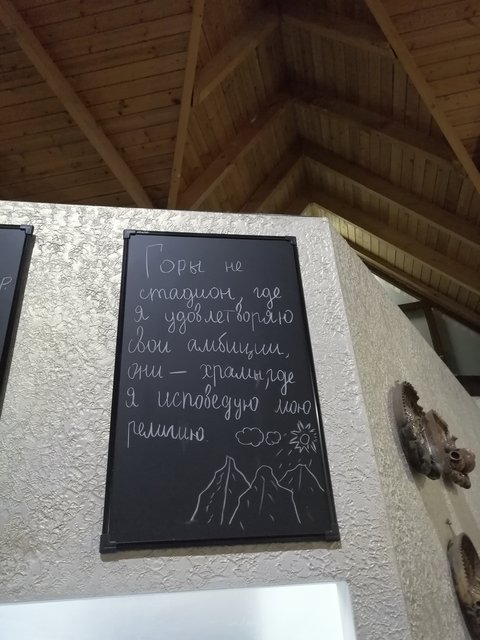 Горы не
стадион, где
я удовлетворяю
свои амбиции,
они — храмы, где
я исповедую мою
религию